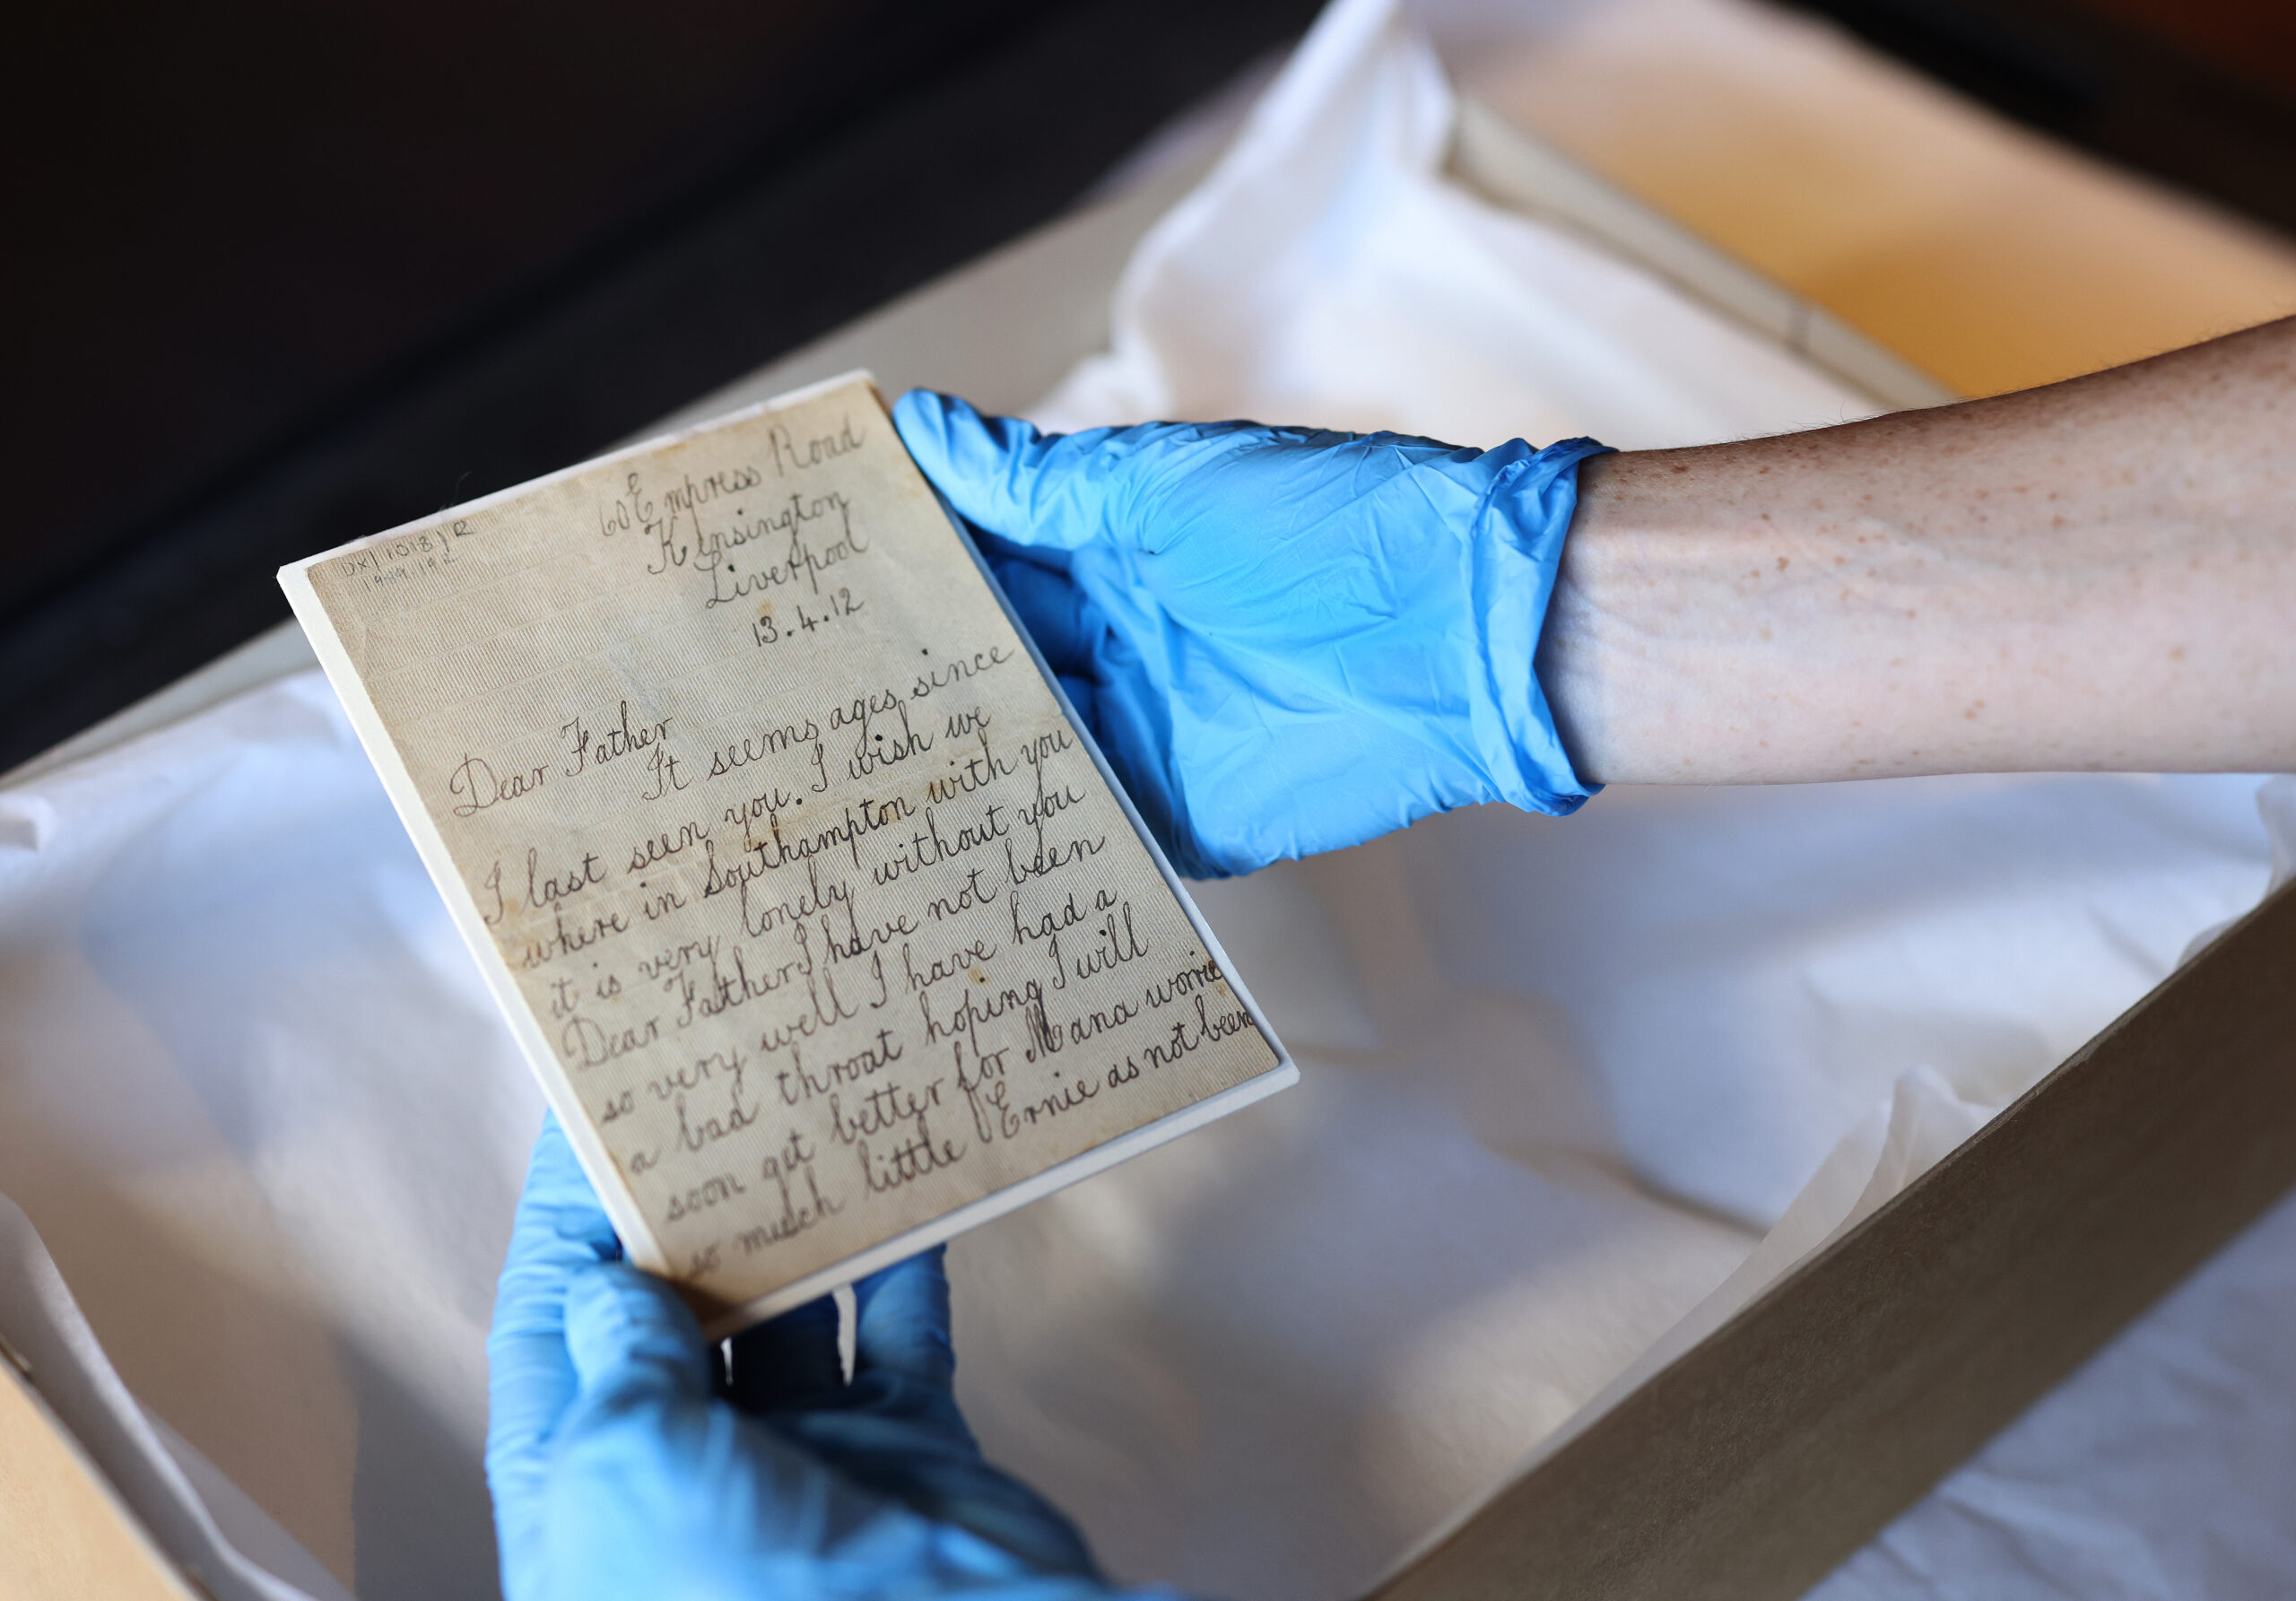 DX/1018/R
60 Empress Road
Kensington
Liverpool
13.4.12
Dear Father
It seems ages since
I last seen you. I wish we
where in Southampton with you
it is very lonely without you
Dear Father I have not been
so very well I have had a
a bad throat hoping I will
soon get better for Mana worrie
so much little Ernie as not been